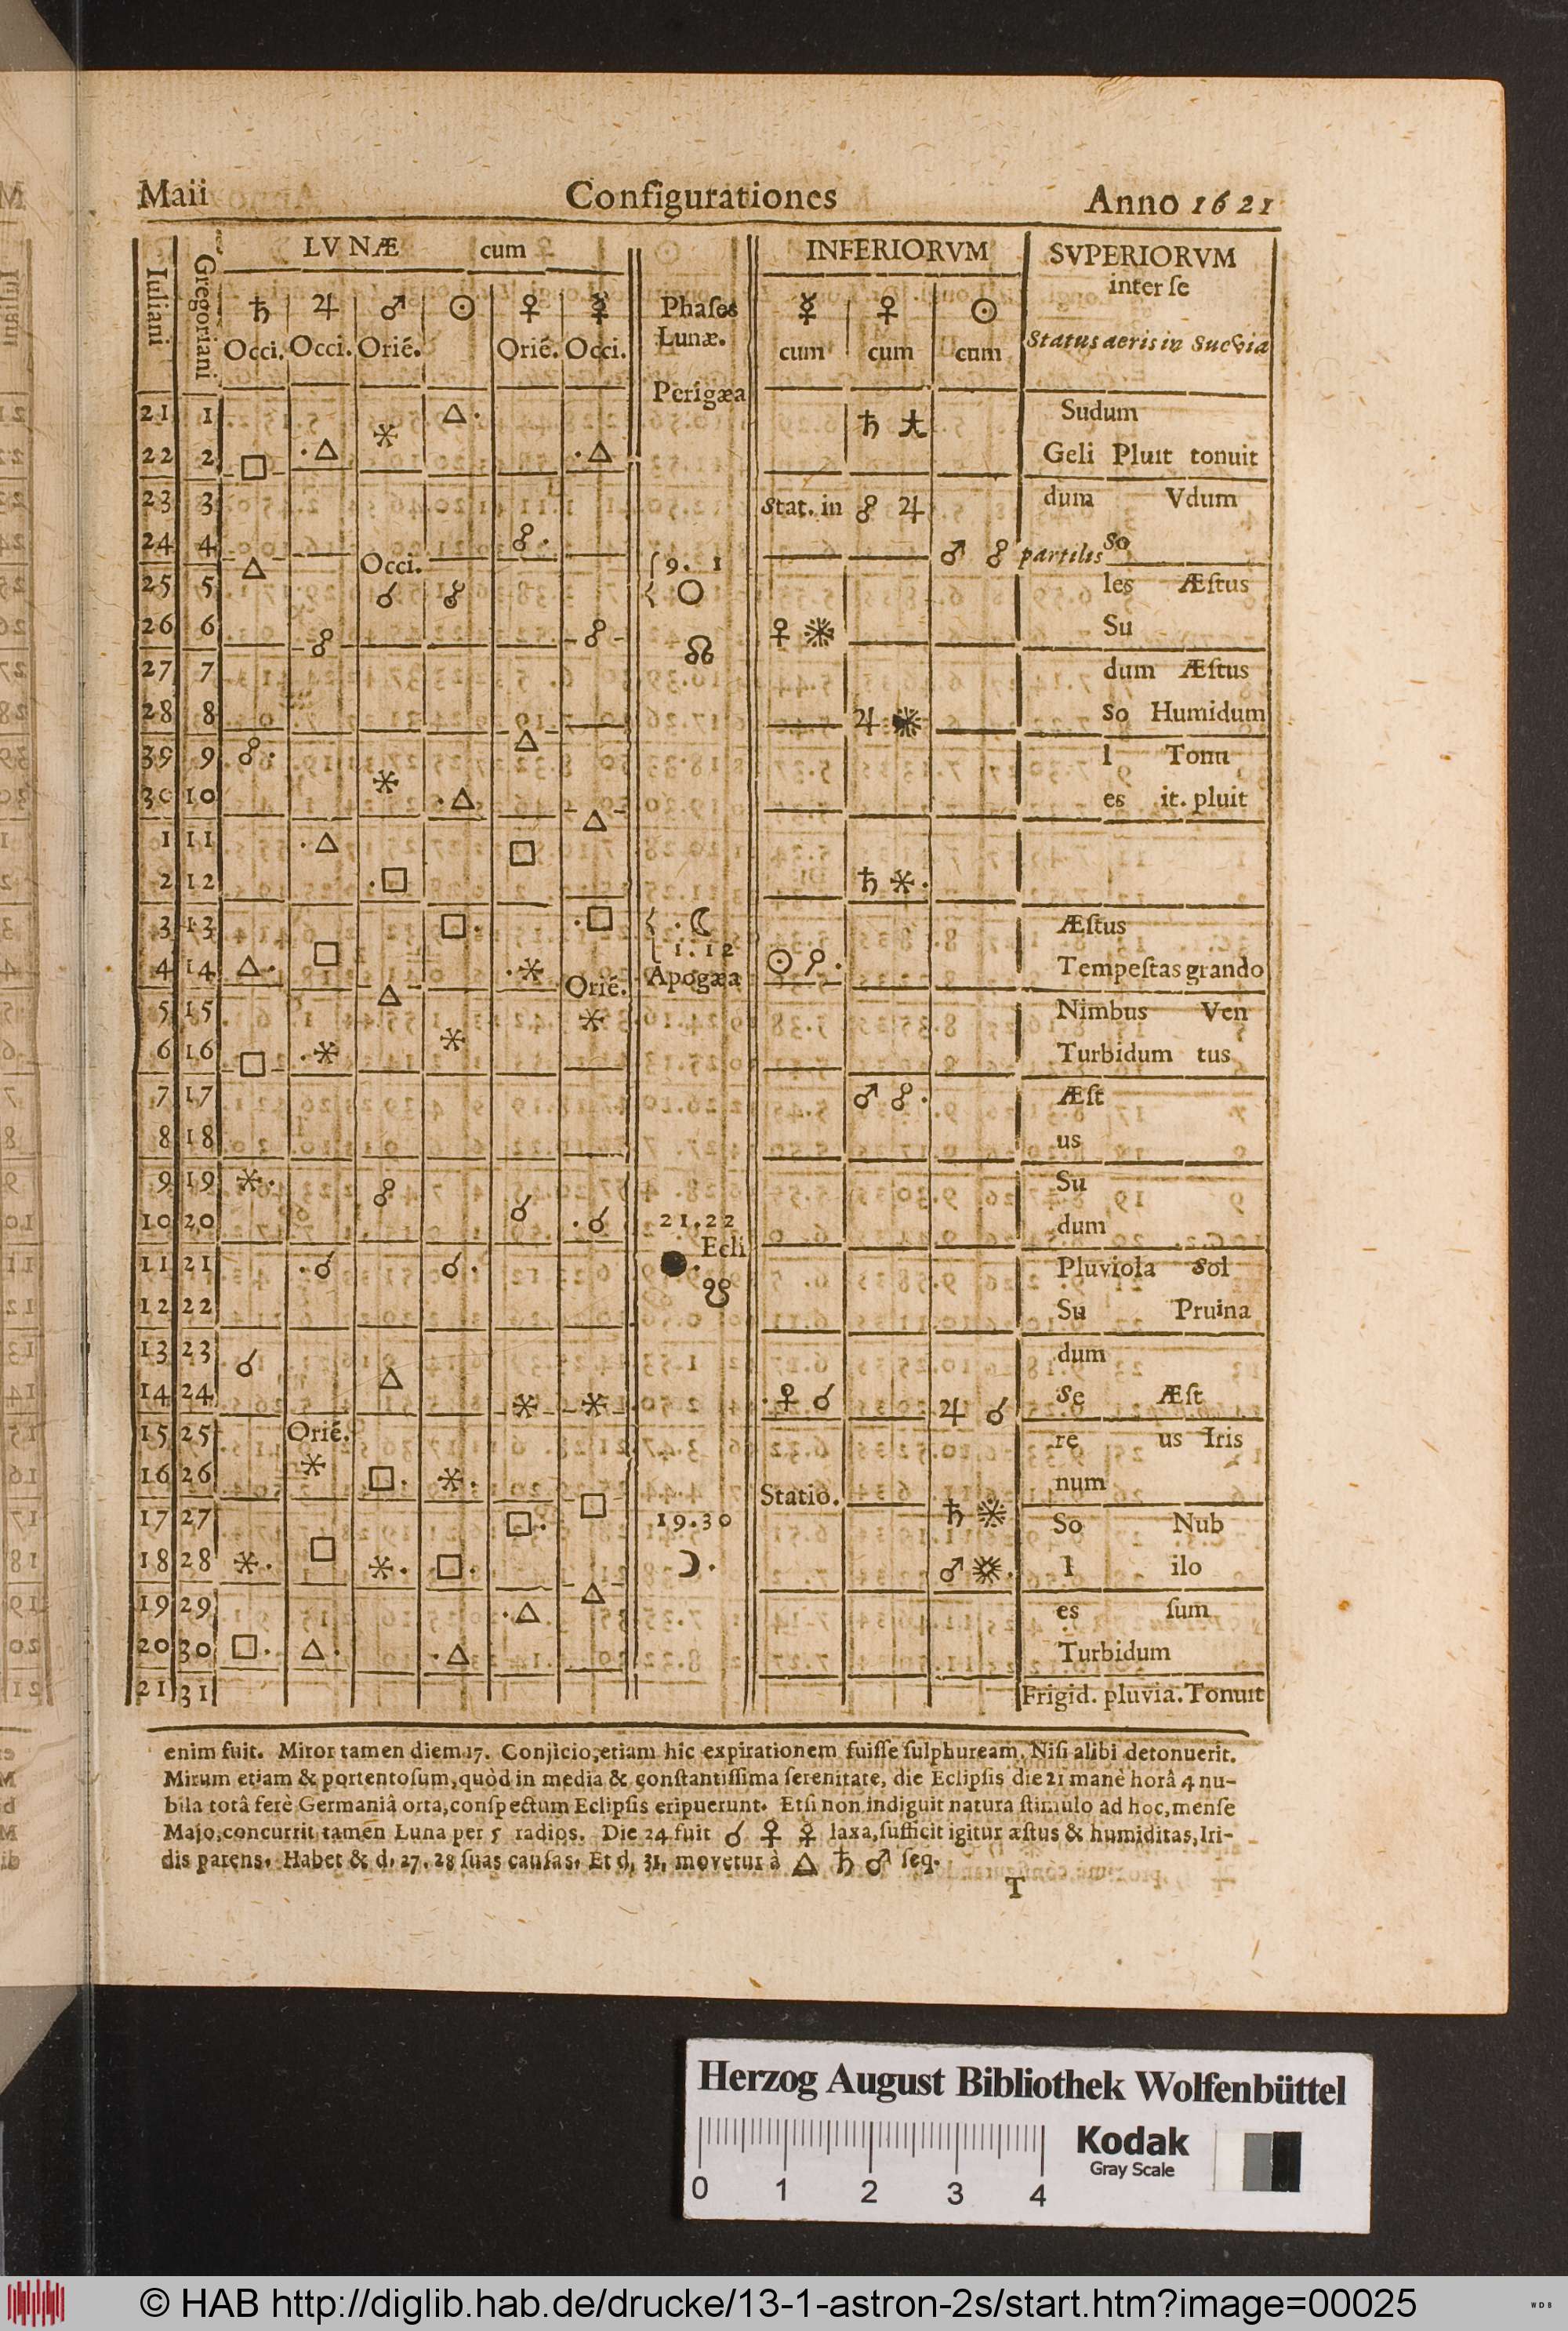 Maii Configurationes Anno 1621
LVNÆ cum INFERIORVM SVPERIORVM
inter ſe
Iuliani Gregoriani ♄ ♃ ♂ ☉ ♀ ☿ Phaſes ☿ ♀ ☉
Lunæ. Status aeris in Suevia
Occi. Occi. Orié. Orié. Occi. cum cum cum
Perigæa
21 1 ⚹ △. ♄ Sudum
22 2 □ .△ .△ Geli Pluit tonuit
23 3 Stat. in ☍ ♃ dum Vdum
24 4 △ Occi. ☍. 9. 1 ♂ ☍ partiles So
25 5 ☌ ☍ ○ les Æſtus
26 6 ☍ ☍ ☊ ♀ Su
27 7 dum Æſtus
28 8 △ ♃ So Humidum
39 9 ☍. l Tonu
30 10 ⚹ .△ △ es it. pluit
1 11 .△ □
2 12 .□ ♄ ⚹.
3 13 □. .□ .☾ Æſtus
1.12
4 14 △. □ △ .⚹ Orié. Apogæa ☉ Tempeſtas grando
5 15 ⚹ Nimbus Ven
6 16 □ .⚹ ⚹ Turbidum tus
7 17 ♂ ☍. Æſt
8 18 us
9 19 ⚹. ☍ Su
10 20 ☌ .☌ 21.22 dum
Ecli
11 21 .☌ ☌. ●. Pluviola Sol
12 22 ☋ Su Pruina
13 23 ☌ dum
14 24 △ ⚹ ⚹ .♀ ☌ ♃ ☌ Se Æſt
15 25 Orié. re us Iris
16 26 ⚹ □. ⚹. □ Statio. num
17 27 □. 19.30 ♄ So Nub
18 28 ⚹. □ ⚹. □. △ ☽. ♂ l ilo
19 29 .△ es ſum
20 30 □. △. .△ Turbidum
21 31 Frigid. pluvia. Tonuit
enim fuit. Miror tamen diem 17. Conjicio, etiam hic expirationem fuiſſe ſulphuream. Niſi alibi detonuerit.
Mirum etiam & portentoſum, quòd in media & conſtantiſſima ſerenitate, die Eclipſis die 21 manè horâ 4 nu-
bila totâ ferè Germaniâ orta, conſpectum Eclipſis eripuerunt. Etſi non indiguit natura ſtimulo ad hoc, menſe
Majo, concurrit tamen Luna per 5 radios. Die 24 fuit ☌ ♀ ☿ laxa, ſufficit igitur æſtus & humiditas, Iri-
dis parens. Habet & d. 27. 28 ſuas cauſas. Et d. 31. movetur à △ ♄ ♂ ſeq.
T
Herzog August Bibliothek Wolfenbüttel
Kodak
Gray Scale
0 1 2 3 4
© HAB http://diglib.hab.de/drucke/13-1-astron-2s/start.htm?image=00025
WDB